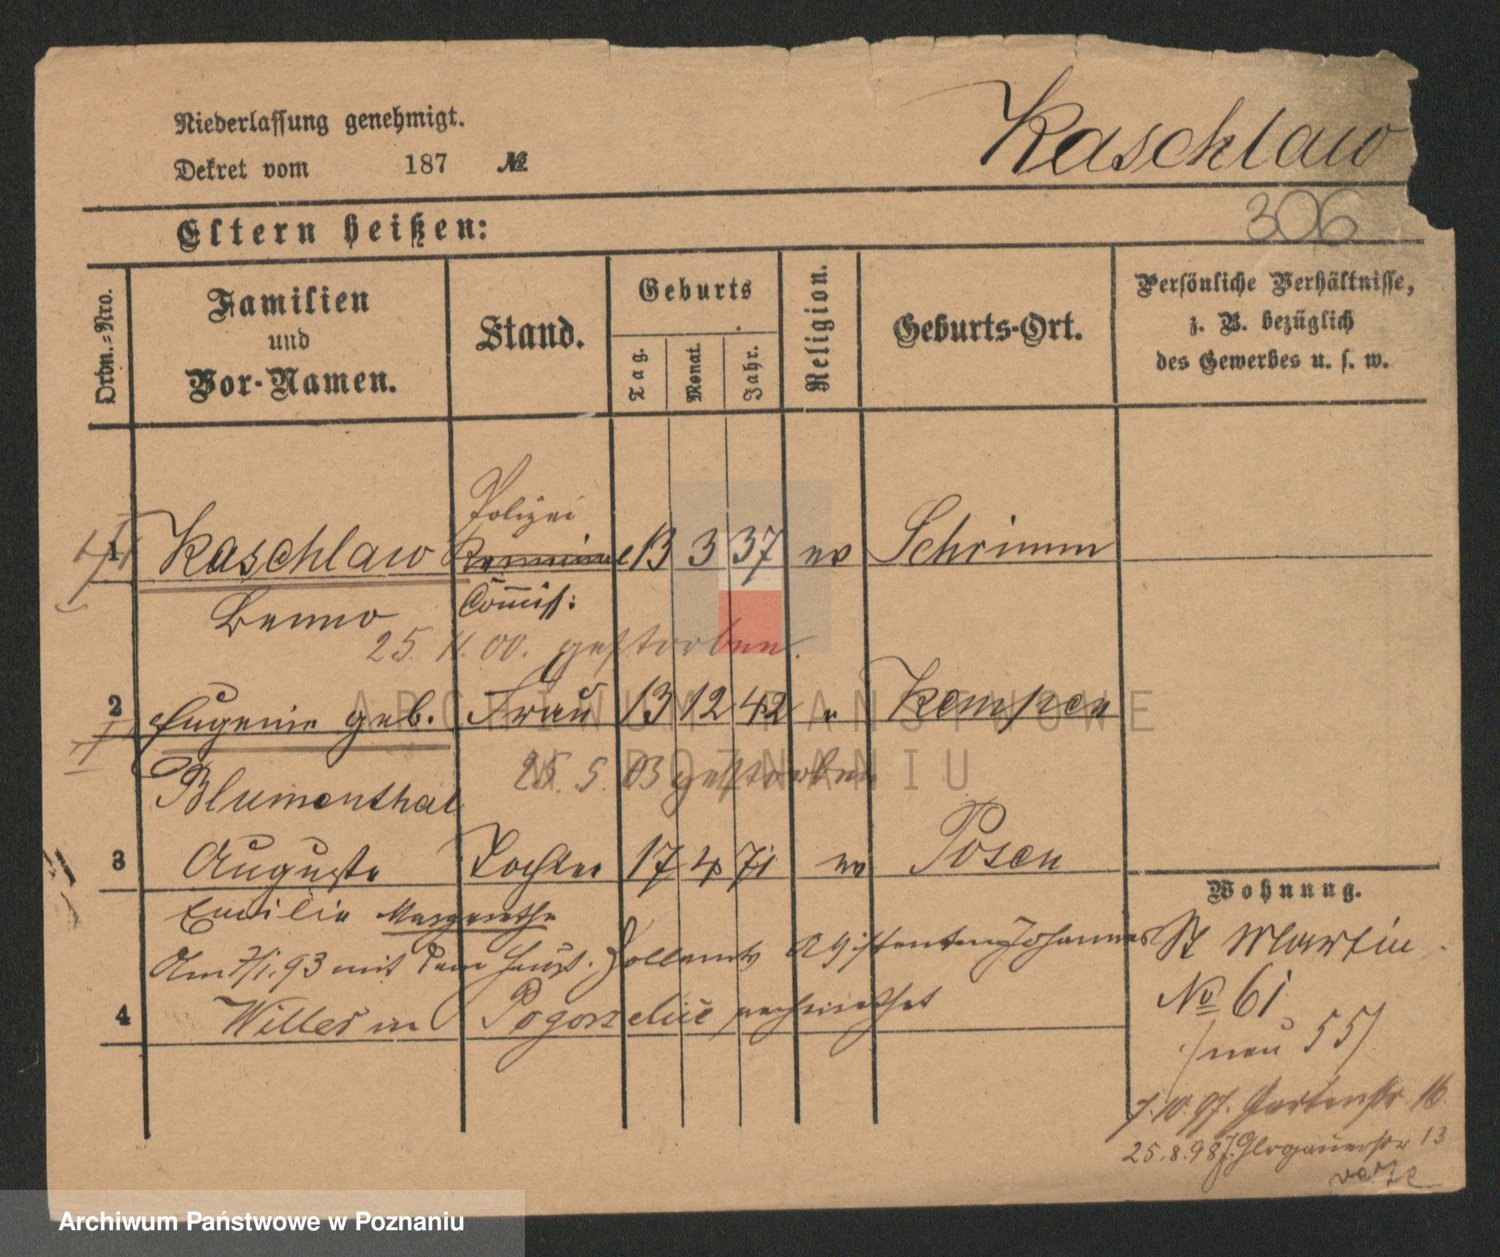 Niederlassung genehmigt.
Dekret vom 187 №
Kaschlaw
306
Eltern heißen:
Ordn.-Nro.
Familien
und
Vor-Namen.
Stand.
Geburts
Tag.
Monat.
Jahr.
Religion.
Geburts-Ort.
Persönliche Verhältnisse,
z. B. bezüglich
des Gewerbes u. s. w.
Polizei
1 Kaschlaw 13 3 37 ev Schrimm
Benno Commiss:
25. 11. 00. gestorben.
2 Eugenie geb. Frau 13 12 42 " Kempen
25. 5. 03 gestorben
Blumenthal
3 Auguste Tochter 17 4 71 ev Posen
Emilie Margarethe
Am 7/1. 93 mit dem Assistenten Johannes
4 Willer in Pogorzelice verheirathet
Wohnung.
St Martin
No 61
(neu 55)
7. 10. 97. Gartenstr 16
25. 8. 98 Glogauerstr 13
ARCHIWUM PAŃSTWOWE
W POZNANIU
Archiwum Państwowe w Poznaniu